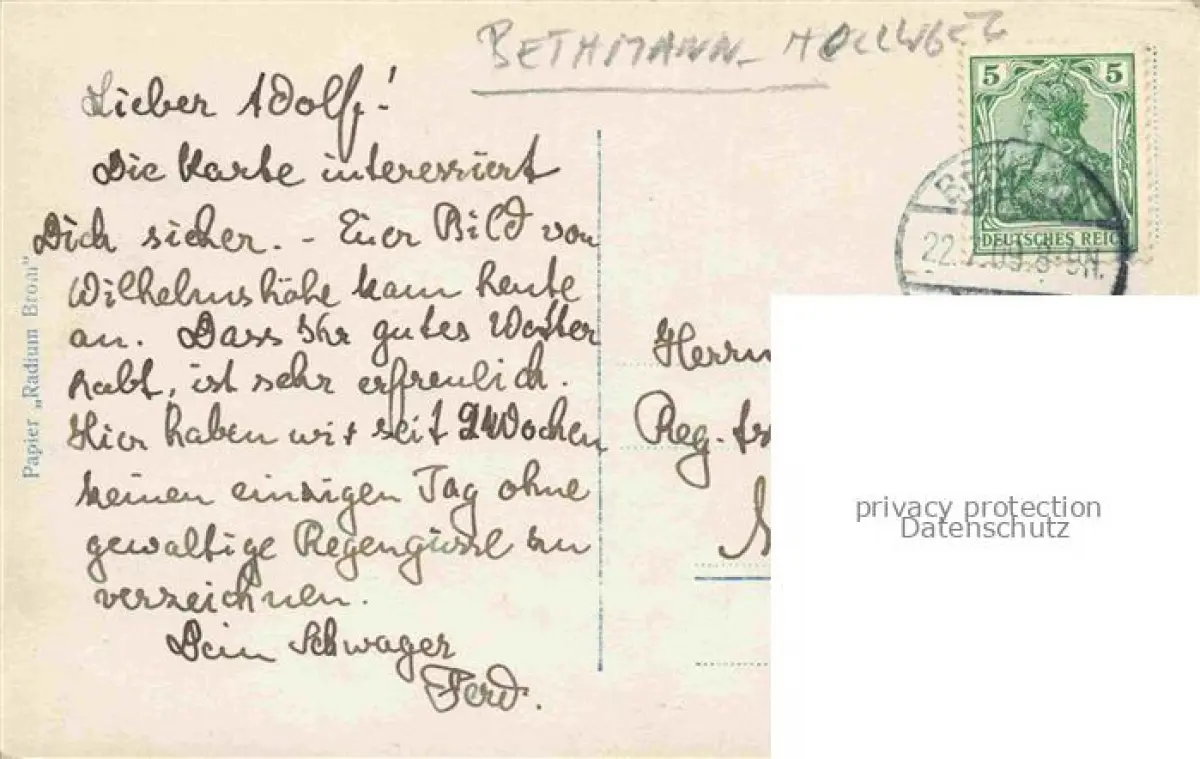 BETHMANN-HOLLWEG
5 5
DEUTSCHES REICH
BER
22.7.09. 8-9N.
Lieber Adolf!
Die Karte interessiert
Dich sicher. - Euer Bild von
Wilhelmshöhe kam heute
an. Dass Ihr gutes Wetter
habt, ist sehr erfreulich.
Hier haben wir seit Wochen
keinen einzigen Tag ohne
gewaltige Regengüsse zu
verzeichnen.
Dein Schwager
Ferd.
Herrn
Reg.
Papier „Radium Brom"
privacy protection
Datenschutz